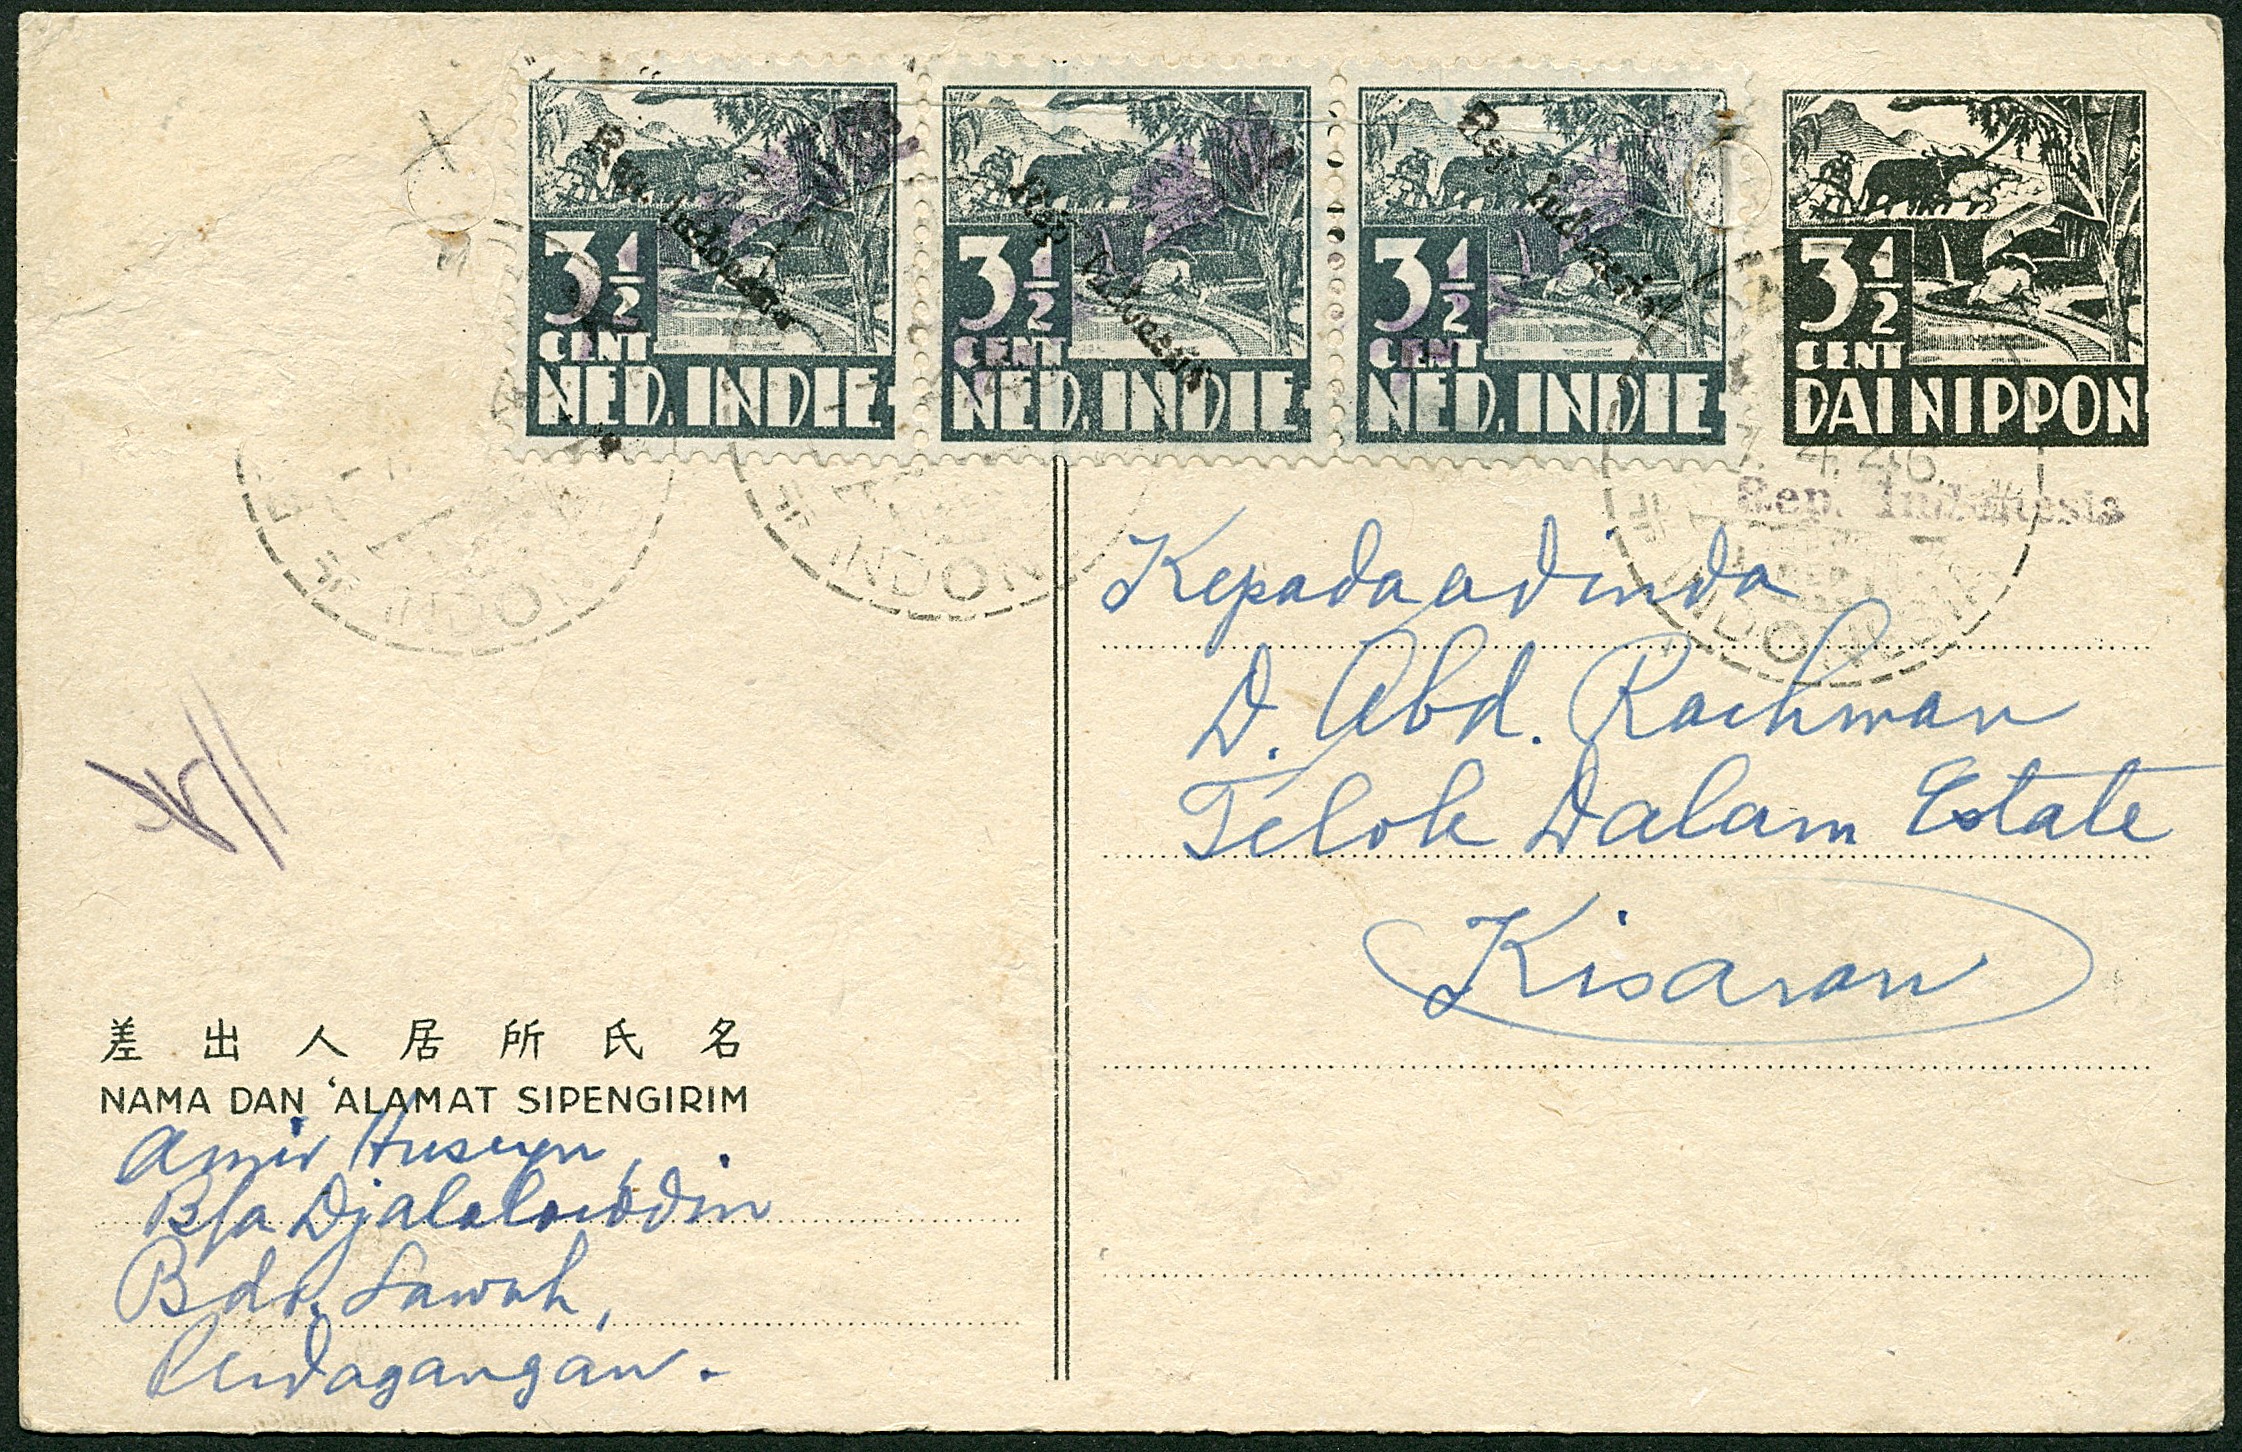 Rep. Indonesia
3½
CENT
NED. INDIE
Rep. Indonesia
3½
CENT
NED. INDIE
Rep. Indonesia
3½
CENT
NED. INDIE
3½
CENT
DAI NIPPON
4.46.
Rep. Indonesia
INDON
INDON
REP
INDON
Kepada adinda
D. Abd. Rachman
Telok Dalam Estate
Kisaran
差出人居所氏名
NAMA DAN 'ALAMAT SIPENGIRIM
Amir Huseyn,
B/a Djalaloeddin
Bdr. Sawah,
Perdagangan.